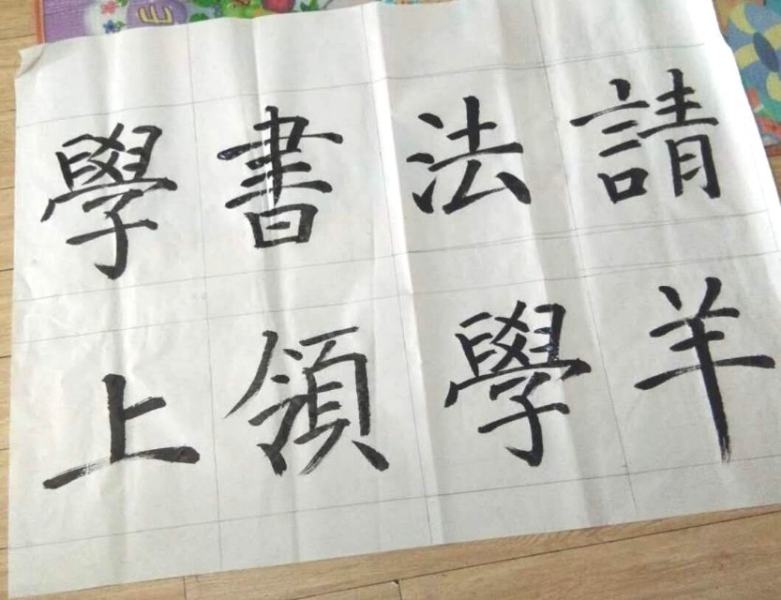 學書法請
上領學羊